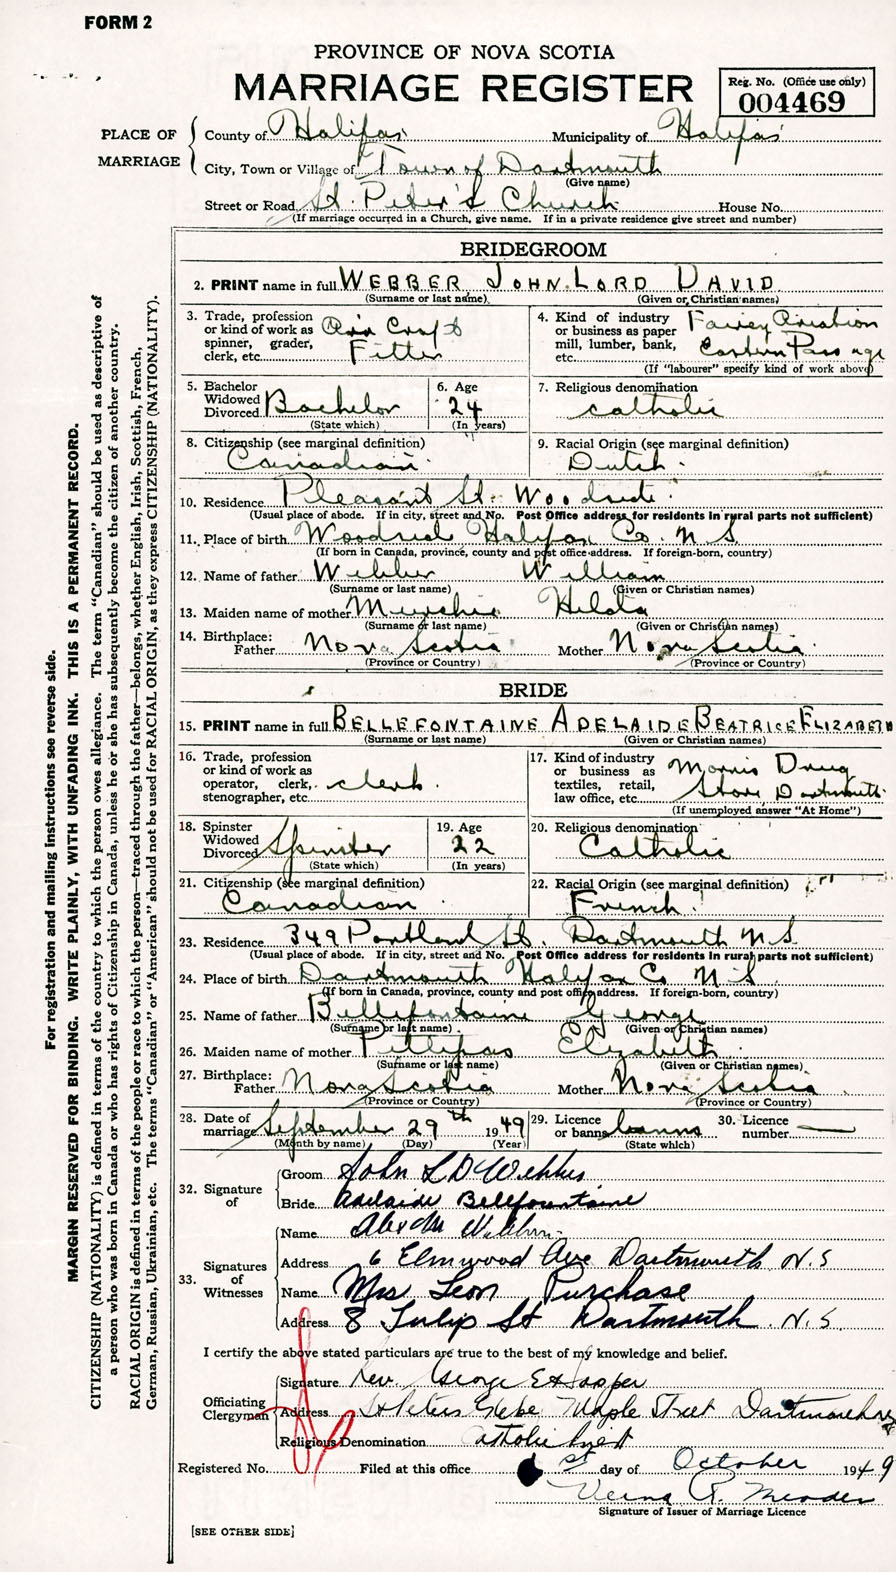 FORM 2
PROVINCE OF NOVA SCOTIA
MARRIAGE REGISTER
Reg. No. (Office use only)
004469
PLACE OF MARRIAGE
County of Halifax Municipality of Halifax
City, Town or Village of Town of Dartmouth
(Give name)
Street or Road St. Peter's Church House No.
(If marriage occurred in a Church, give name. If in a private residence give street and number)
BRIDEGROOM
2. PRINT name in full WEBBER JOHN LORD DAVID
(Surname or last name) (Given or Christian names)
3. Trade, profession or kind of work as spinner, grader, clerk, etc. Air Craft Fitter
4. Kind of industry or business as paper mill, lumber, bank, etc. Fairey Aviation Eastern Passage
(If "labourer" specify kind of work above)
5. Bachelor Widowed Divorced Bachelor
(State which)
6. Age 24
(In years)
7. Religious denomination Catholic
8. Citizenship (see marginal definition) Canadian
9. Racial Origin (see marginal definition) Dutch
10. Residence Pleasant St. Woodside
(Usual place of abode. If in city, street and No. Post Office address for residents in rural parts not sufficient)
11. Place of birth Woodside Halifax Co. N.S.
(If born in Canada, province, county and post office address. If foreign-born, country)
12. Name of father Webber William
(Surname or last name) (Given or Christian names)
13. Maiden name of mother Murchie Hilda
(Surname or last name) (Given or Christian names)
14. Birthplace: Father Nova Scotia Mother Nova Scotia
(Province or Country) (Province or Country)
BRIDE
15. PRINT name in full BELLEFONTAINE ADELAIDE BEATRICE ELIZABETH
(Surname or last name) (Given or Christian names)
16. Trade, profession or kind of work as operator, clerk, stenographer, etc. clerk
17. Kind of industry or business as textiles, retail, law office, etc. Morris Drug Store Dartmouth
(If unemployed answer "At Home")
18. Spinster Widowed Divorced Spinster
(State which)
19. Age 22
(In years)
20. Religious denomination Catholic
21. Citizenship (see marginal definition) Canadian
22. Racial Origin (see marginal definition) French
23. Residence 349 Portland St. Dartmouth N.S.
(Usual place of abode. If in city, street and No. Post Office address for residents in rural parts not sufficient)
24. Place of birth Dartmouth Halifax Co N.S.
(If born in Canada, province, county and post office address. If foreign-born, country)
25. Name of father Bellefontaine George
(Surname or last name) (Given or Christian names)
26. Maiden name of mother Petitpas Elizabeth
(Surname or last name) (Given or Christian names)
27. Birthplace: Father Nova Scotia Mother Nova Scotia
(Province or Country) (Province or Country)
28. Date of marriage September 29th 1949
(Month by name) (Day) (Year)
29. Licence or banns banns
(State which)
30. Licence number —
32. Signature of
Groom John L D Webber
Bride Adelaide Bellefountaine
33. Signatures of Witnesses
Name Alex M Webber
Address 6 Elmwood Ave Dartmouth N.S
Name Mrs Leon Purchase
Address 8 Tulip St Dartmouth N.S.
I certify the above stated particulars are true to the best of my knowledge and belief.
Officiating Clergyman
Signature Rev. George E
Address St Peters Glebe Maple Street Dartmouth NS
Religious Denomination Catholic Priest
Registered No. Filed at this office 1st day of October 1949
Verna R.
Signature of Issuer of Marriage Licence
[SEE OTHER SIDE]
For registration and mailing instructions see reverse side.
MARGIN RESERVED FOR BINDING. WRITE PLAINLY, WITH UNFADING INK. THIS IS A PERMANENT RECORD.
CITIZENSHIP (NATIONALITY) is defined in terms of the country to which the person owes allegiance. The term "Canadian" should be used as descriptive of
a person who was born in Canada or who has rights of Citizenship in Canada, unless he or she has subsequently become the citizen of another country.
RACIAL ORIGIN is defined in terms of the people or race to which the person—traced through the father—belongs, whether English, Irish, Scottish, French,
German, Russian, Ukrainian, etc. The terms "Canadian" or "American" should not be used for RACIAL ORIGIN, as they express CITIZENSHIP (NATIONALITY).